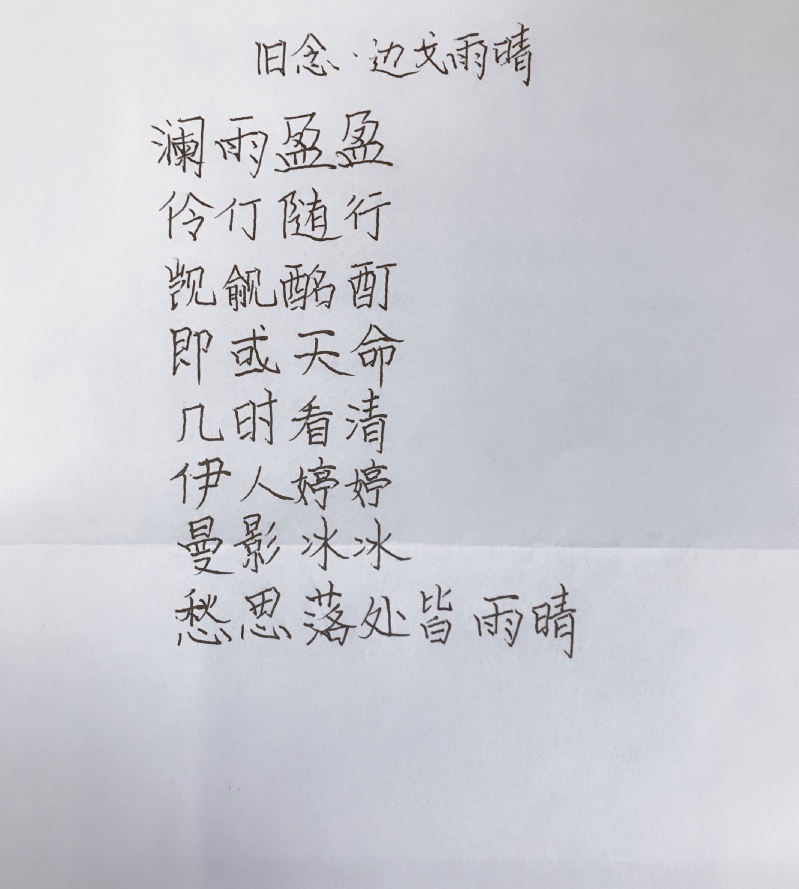 旧念·边戈雨晴
澜雨盈盈
伶仃随行
觊觎酩酊
即或天命
几时看清
伊人婷婷
曼影冰冰
愁思落处皆雨晴